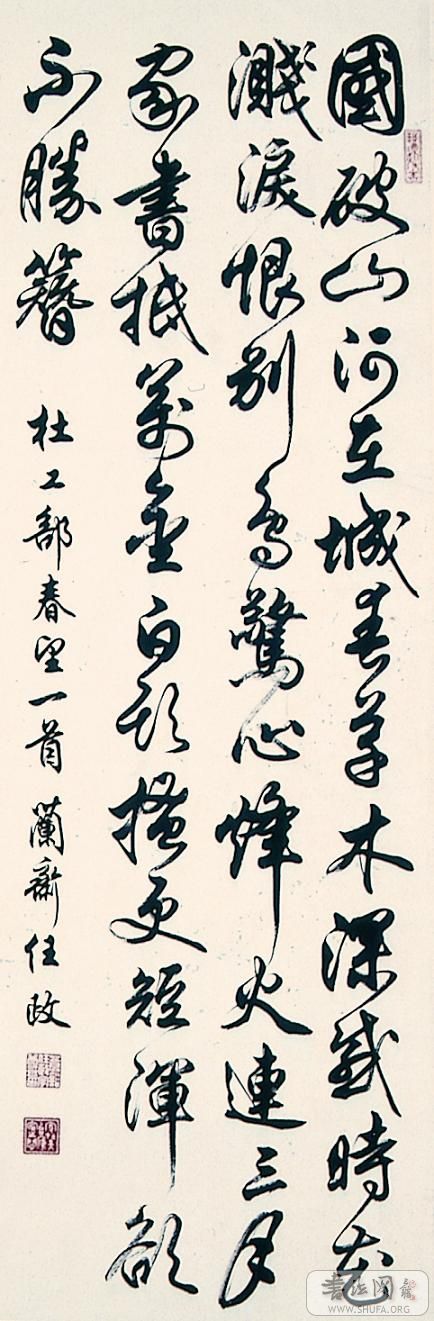 國破山河在城春草木深感時花
濺淚恨別鳥驚心烽火連三月
家書抵萬金白頭搔更短渾欲
不勝簪
杜工部春望一首 蘭齋任政
書法網
WWW.SHUFA.ORG